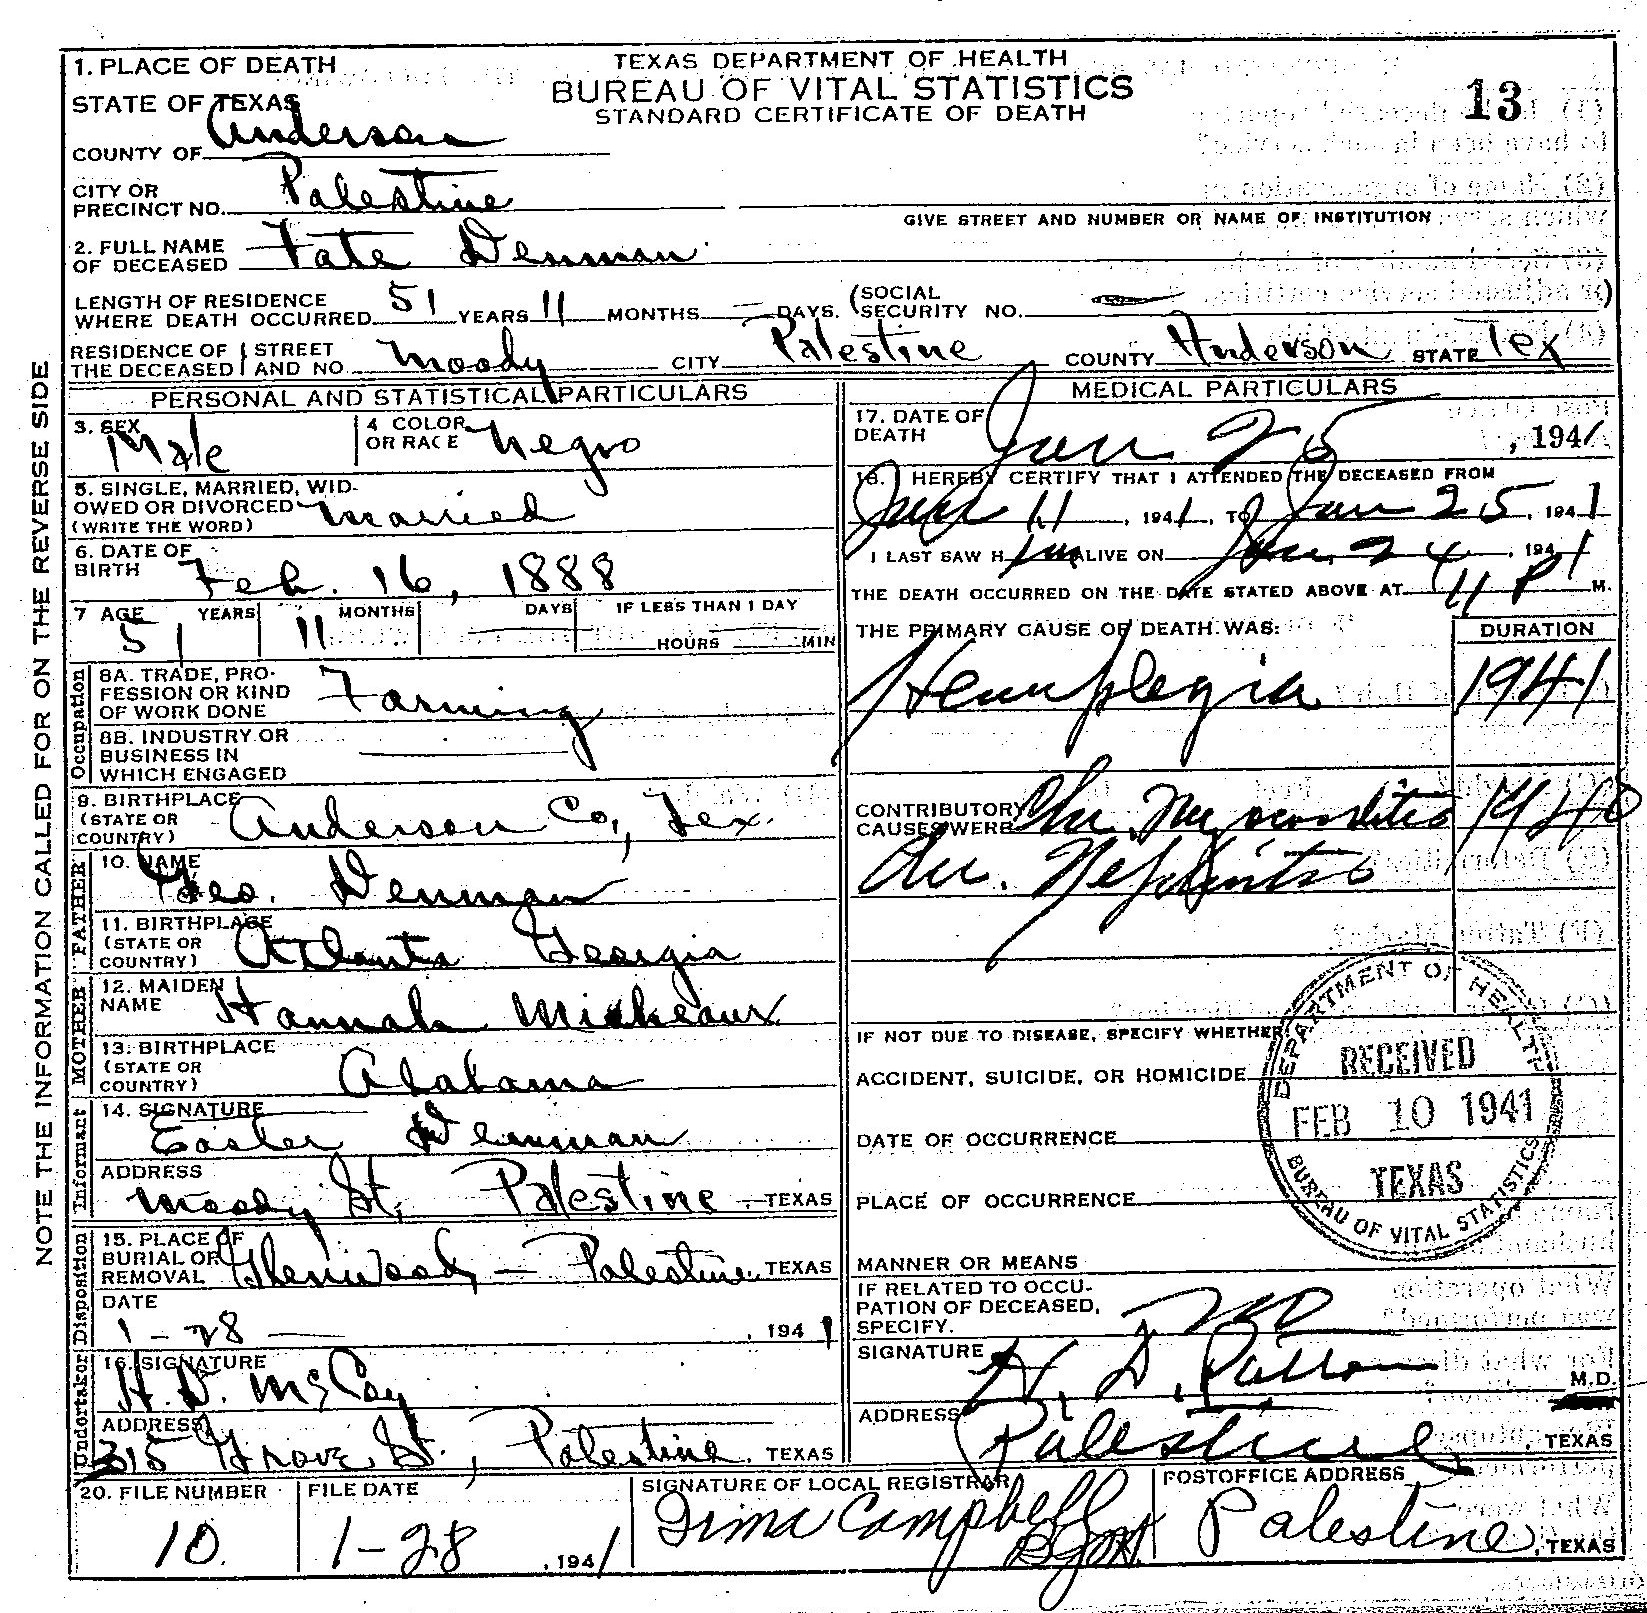 TEXAS DEPARTMENT OF HEALTH
BUREAU OF VITAL STATISTICS
STANDARD CERTIFICATE OF DEATH
13
NOTE THE INFORMATION CALLED FOR ON THE REVERSE SIDE
1. PLACE OF DEATH
STATE OF TEXAS
COUNTY OF Anderson
CITY OR PRECINCT NO. Palestine
GIVE STREET AND NUMBER OR NAME OF INSTITUTION
2. FULL NAME OF DECEASED Fate Denman
LENGTH OF RESIDENCE WHERE DEATH OCCURRED 51 YEARS 11 MONTHS – DAYS. (SOCIAL SECURITY NO. — )
RESIDENCE OF THE DECEASED STREET AND NO. Moody CITY Palestine COUNTY Anderson STATE Tex
PERSONAL AND STATISTICAL PARTICULARS
3. SEX Male
4 COLOR OR RACE Negro
5. SINGLE, MARRIED, WIDOWED OR DIVORCED (WRITE THE WORD) Married
6. DATE OF BIRTH Feb. 16, 1888
7 AGE YEARS MONTHS DAYS IF LESS THAN 1 DAY
51 11 HOURS MIN
Occupation
8A. TRADE, PROFESSION OR KIND OF WORK DONE Farming
8B. INDUSTRY OR BUSINESS IN WHICH ENGAGED
9. BIRTHPLACE (STATE OR COUNTRY) Anderson Co., Tex.
FATHER
10. NAME Geo. Denman
11. BIRTHPLACE (STATE OR COUNTRY) Atlanta Georgia
MOTHER
12. MAIDEN NAME Hannah Micheaux
13. BIRTHPLACE (STATE OR COUNTRY) Alabama
Informant
14. SIGNATURE Easter Denman
ADDRESS Moody St. Palestine TEXAS
Disposition
15. PLACE OF BURIAL OR REMOVAL Glenwood – Palestine TEXAS
DATE 1-28 — , 1941
Undertaker
16. SIGNATURE H. D. McCoy
ADDRESS 315 Grove St., Palestine, TEXAS
MEDICAL PARTICULARS
17. DATE OF DEATH Jan 25, 1941
18. I HEREBY CERTIFY THAT I ATTENDED THE DECEASED FROM
Jan 11, 1941, TO Jan 25, 1941
I LAST SAW H im ALIVE ON Jan. 24, 1941
THE DEATH OCCURRED ON THE DATE STATED ABOVE AT 11 P M.
THE PRIMARY CAUSE OF DEATH WAS: DURATION
Hemiplegia 1941
CONTRIBUTORY CAUSES WERE Chr. Myocarditis 1940
Chr. Nephritis
IF NOT DUE TO DISEASE, SPECIFY WHETHER
ACCIDENT, SUICIDE, OR HOMICIDE
DATE OF OCCURRENCE
PLACE OF OCCURRENCE
MANNER OR MEANS
DEPARTMENT OF HEALTH
RECEIVED
FEB 10 1941
TEXAS
BUREAU OF VITAL STATISTICS
IF RELATED TO OCCUPATION OF DECEASED, SPECIFY. no
SIGNATURE H. D. M.D.
ADDRESS Palestine, TEXAS
20. FILE NUMBER 10
FILE DATE 1-28, 1941
SIGNATURE OF LOCAL REGISTRAR Tima Campbell
POSTOFFICE ADDRESS Palestine, TEXAS